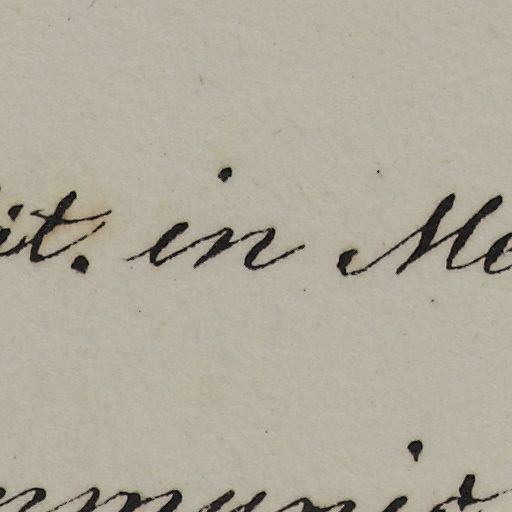 it. in Me
mmunio